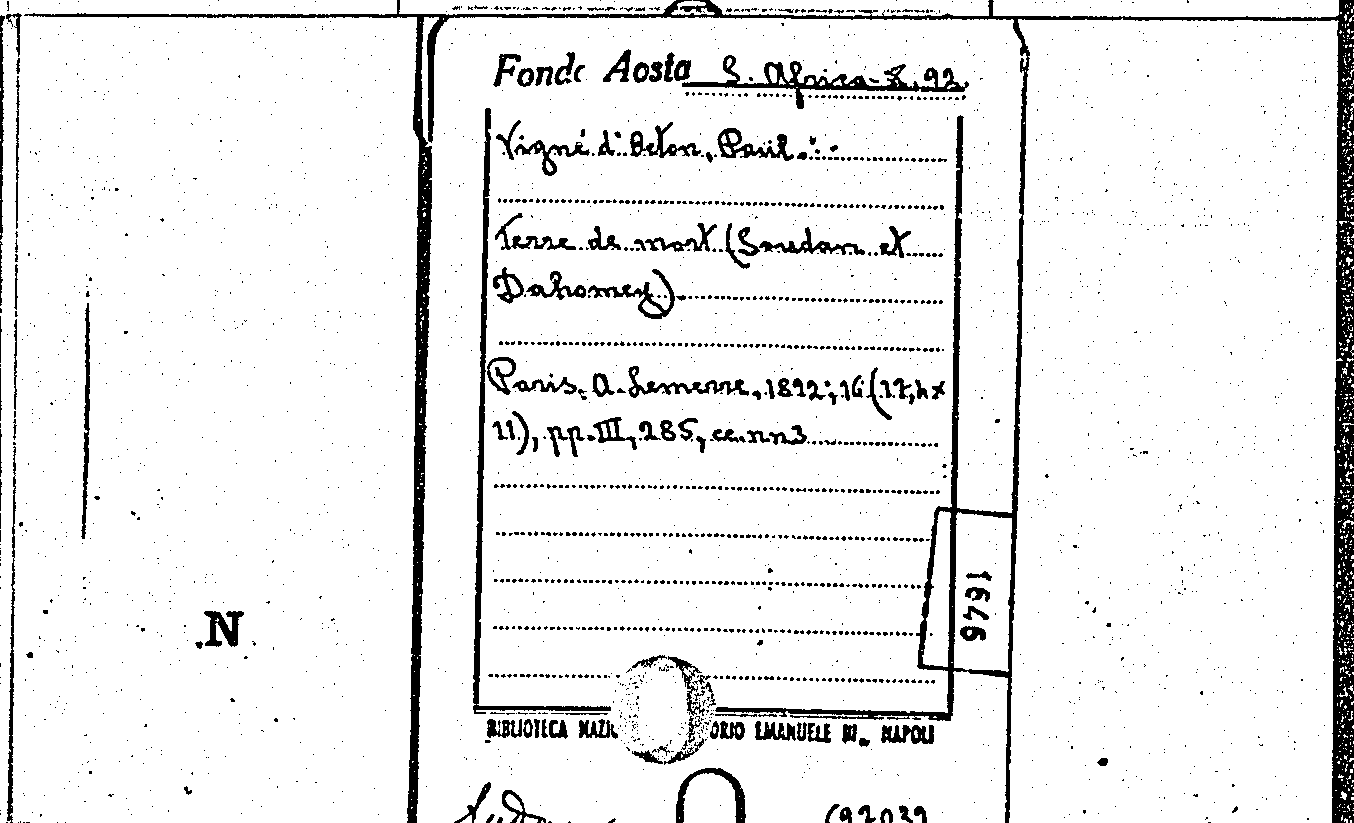 Fondo Aosta S. Africa-X. 92.
Vigné d'Octon, Paul.
Terre de mort (Soudan et
Dahomey).
Paris, A. Lemerre, 1892; 16 (17,h x
11), pp. III, 285, cc. nn 3
1646
N
BIBLIOTECA NAZI ORIO EMANUELE III - NAPOLI